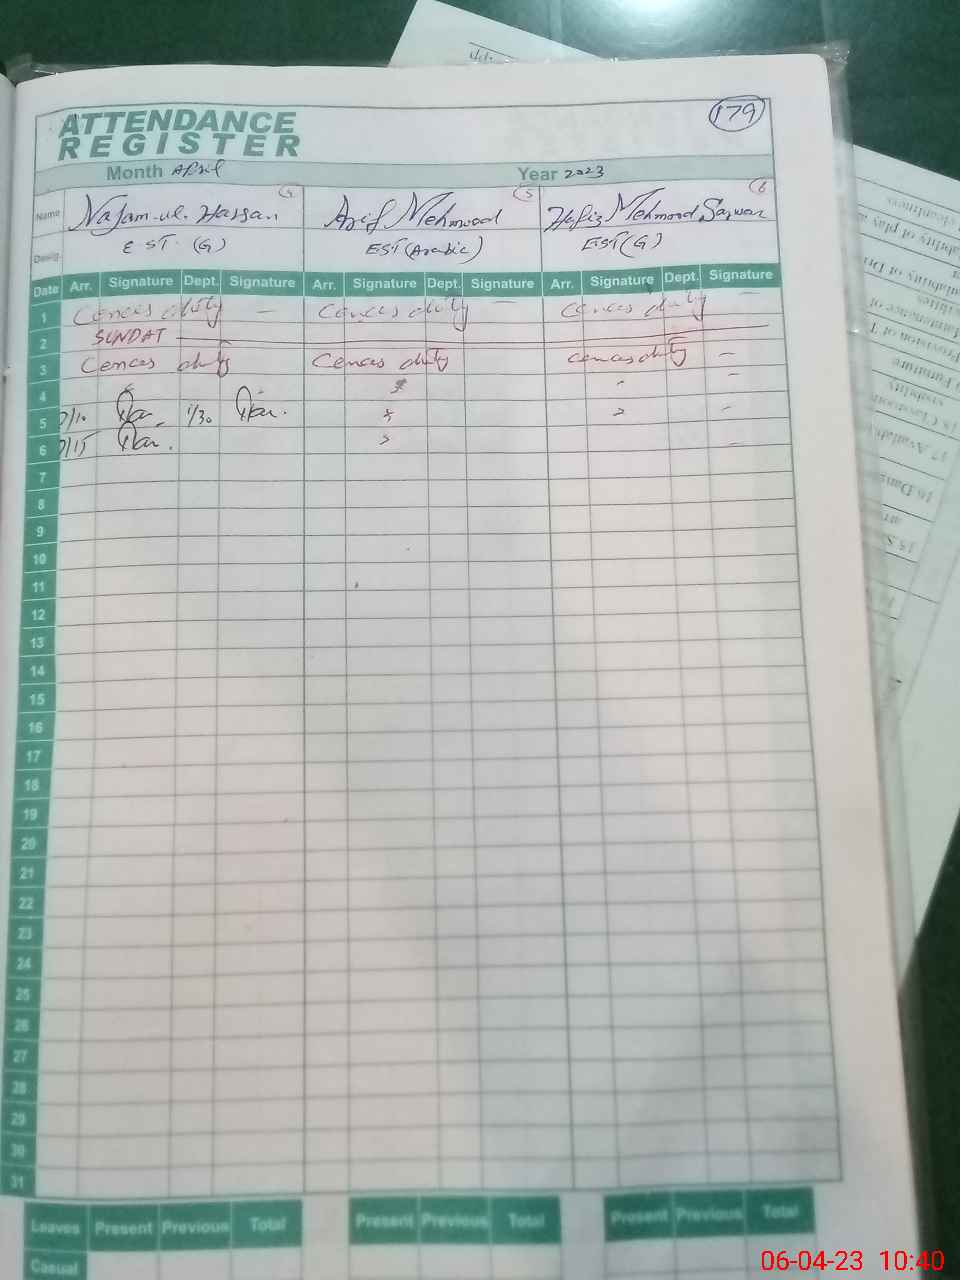 179
ATTENDANCE
REGISTER
Month April Year 2023
4 5 6
Name Najam-ul-Hassan Arif Mehmood Hafiz Mehmood Sarwar
Desig. EST (G) EST (Arabic) EST (G)
Date Arr. Signature Dept. Signature Arr. Signature Dept. Signature Arr. Signature Dept. Signature
1 Cences duty — Cences duty — Cences duty —
2 SUNDAY
3 Cences duty Cences duty Cences duty —
4
5 7/10 1/30
6 7/15
7
8
9
10
11
12
13
14
15
16
17
18
19
20
21
22
23
24
25
26
27
28
29
30
31
Leaves Present Previous Total Present Previous Total Present Previous Total
Casual
06-04-23 10:40